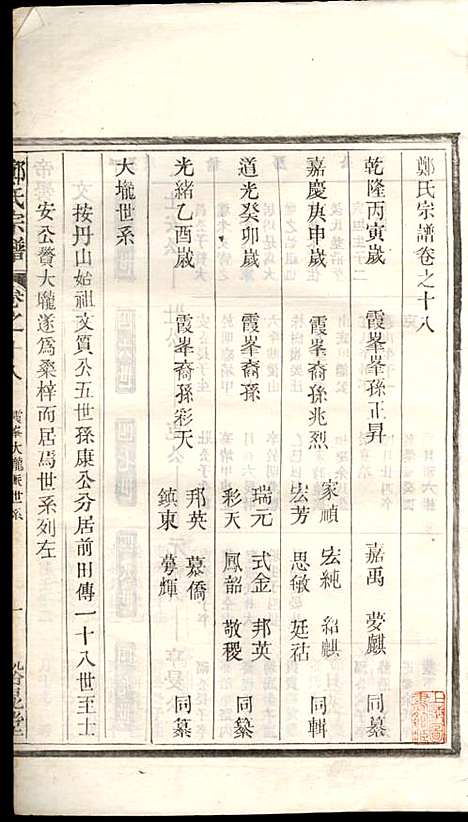 鄭氏宗譜卷之十八
乾隆丙寅歲 霞峯峯孫正昇 嘉禹 夢麒 同纂
嘉慶庚申歲 霞峯裔孫兆烈 家禎 宏純 紹麒 宏芳 思敏 廷祜 同輯
道光癸卯歲 霞峯裔孫 瑞元 式金 邦英 彩天 鳳韶 敬稷 同纂
光緒乙酉歲 霞峯裔孫彩天 邦英 慕僑 鎮東 蕚輝 同纂
大壠世系
按丹山始祖文質公五世孫康公分居前田傳一十八世至士
安公贅大壠遂爲桑梓而居焉世系列左
鄭氏宗譜 卷之十八 霞峯大壠派世系 一